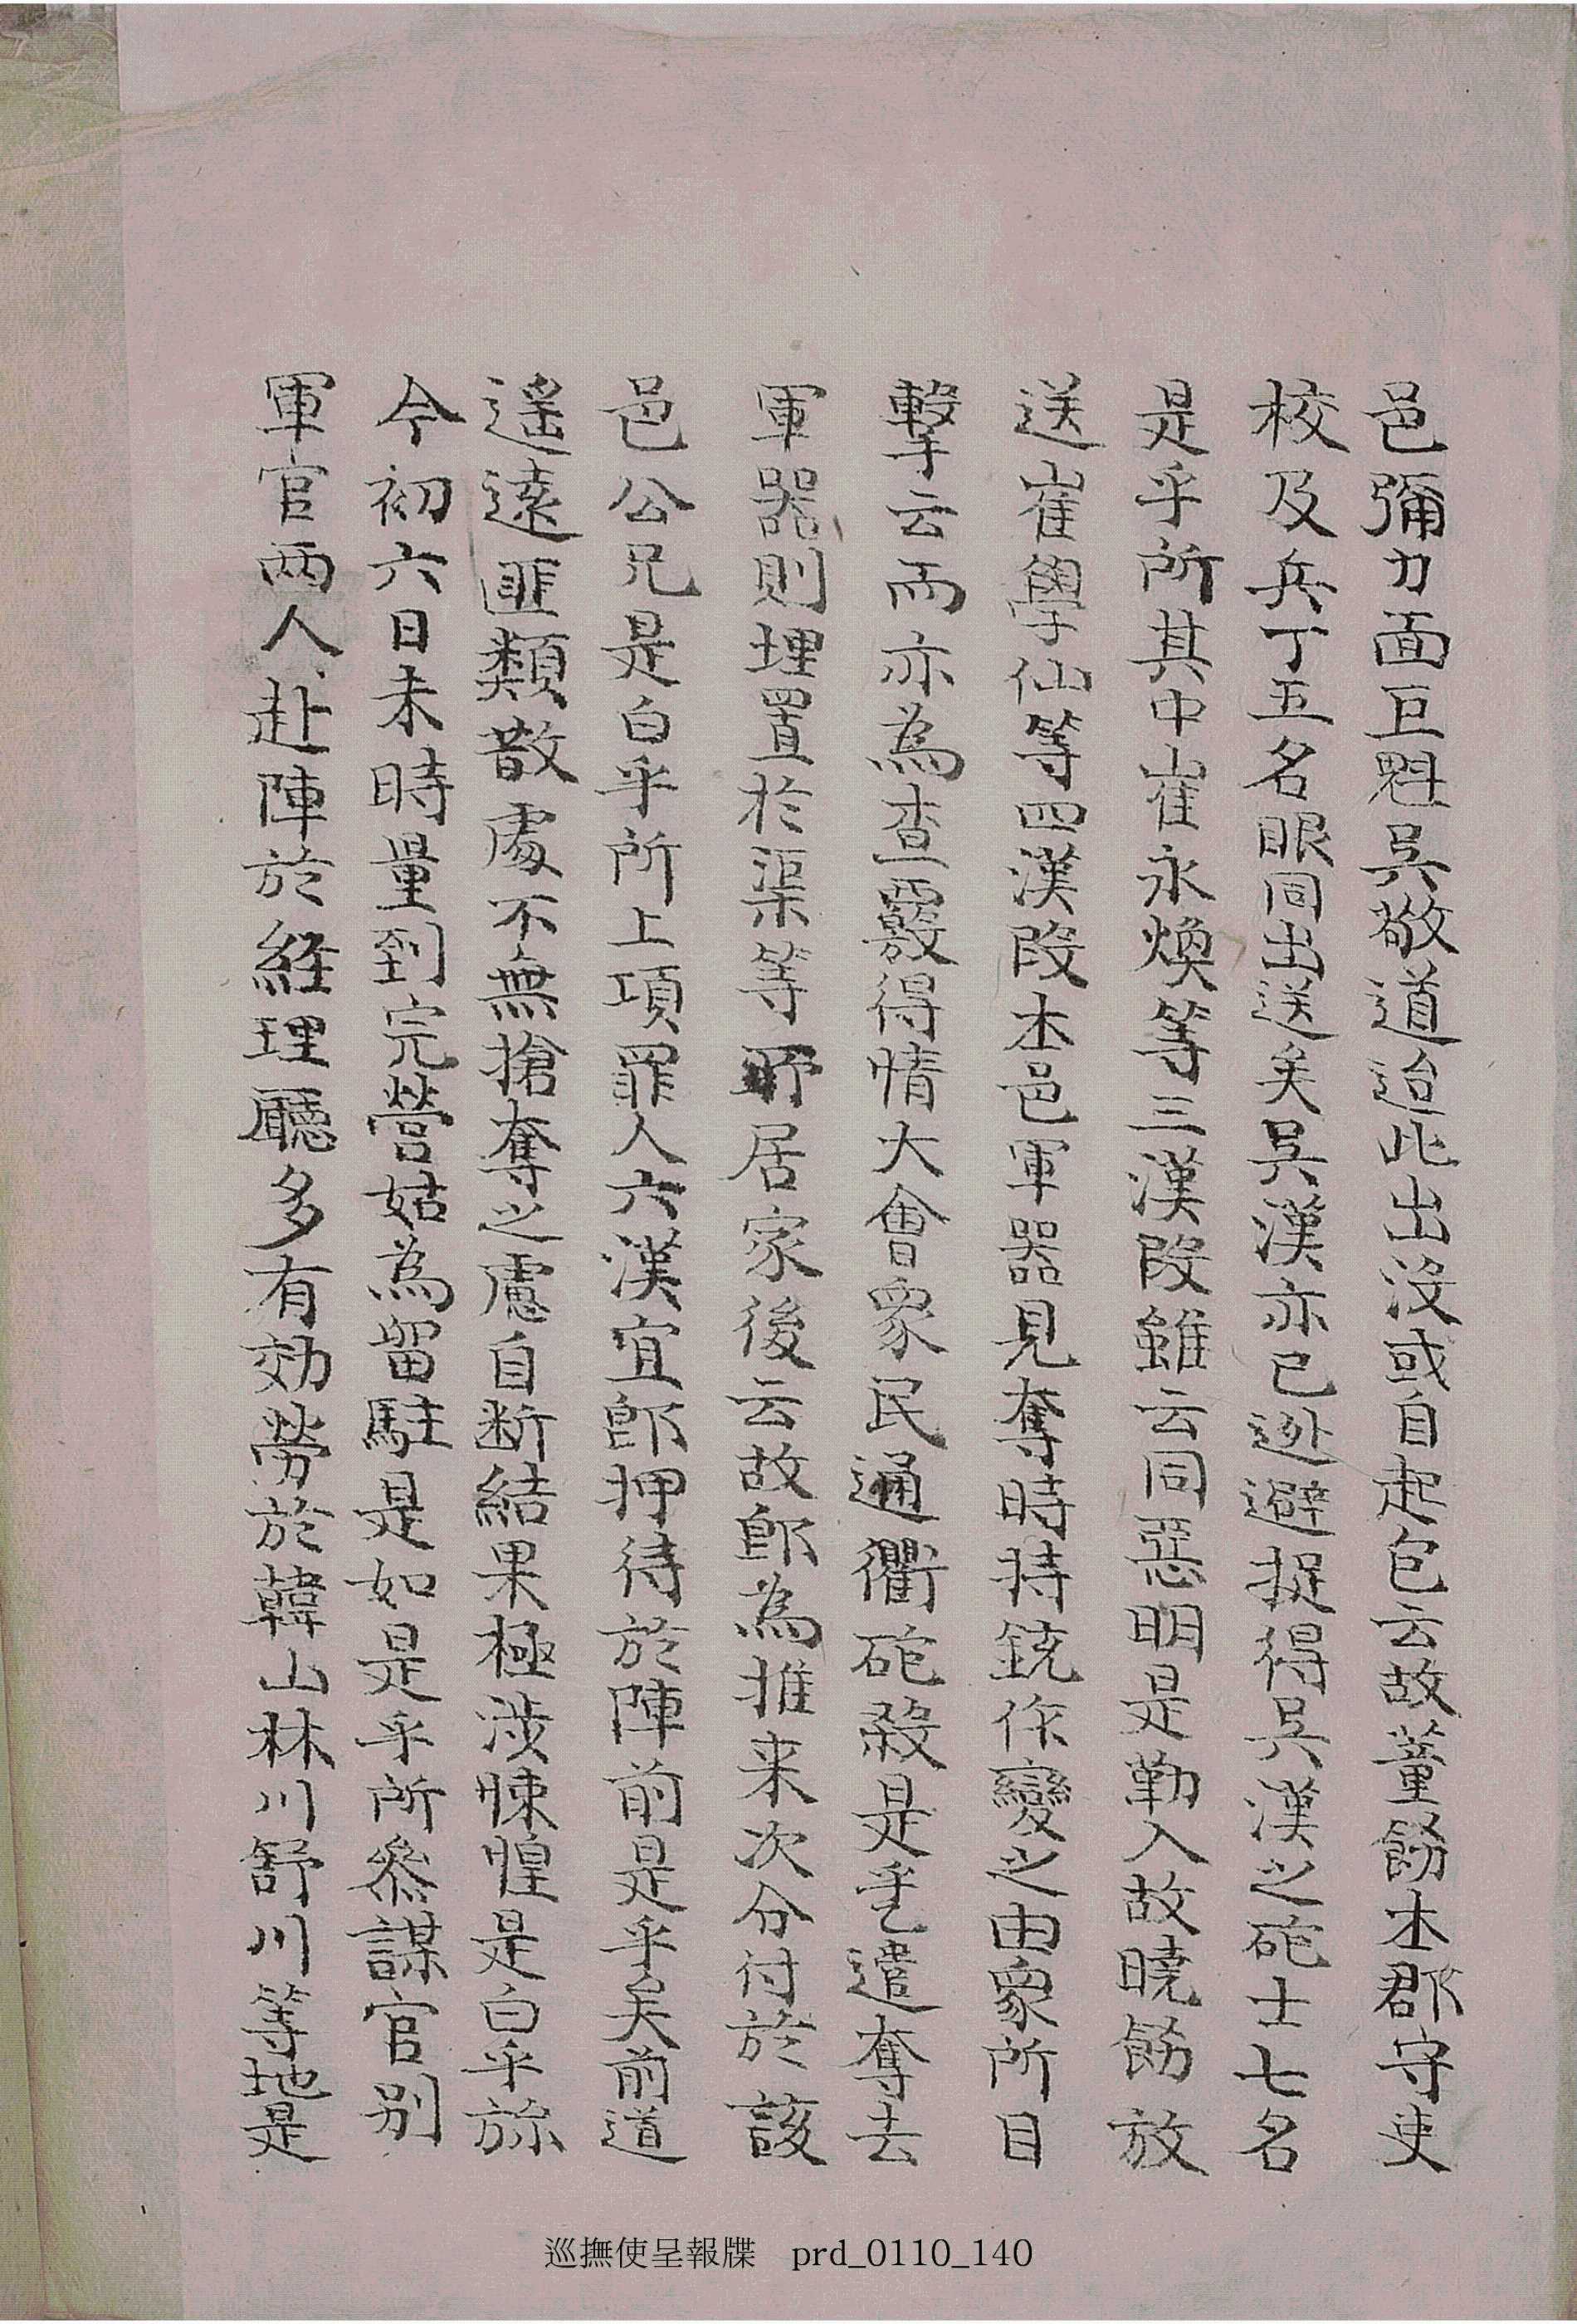 邑彌力面巨魁吳敬道迨此出沒或自起包云故董飭本郡守吏
校及兵丁五名眼同出送矣吳漢亦已逃避捉得吳漢之砲士七名
是乎所其中崔永煥等三漢段雖云同惡明是勒入故曉飭放
送崔學仙等四漢段本邑軍器見奪時持銃作變之由衆所目
擊云而亦為査覈得情大會衆民通衢砲殺是乎乙遣奪去
軍器則埋置於渠等所居家後云故卽為推来次分付於該
邑公兄是白乎所上項罪人六漢宜卽押待於陣前是乎矣前道
遙遠匪類散處不無搶奪之慮自断結果極涉悚惶是白乎旀
今初六日未時量到完營姑為留駐是如是乎所參謀官別
軍官两人赴陣於経理廳多有効勞於韓山林川舒川等地是
巡撫使呈報牒 prd_0110_140